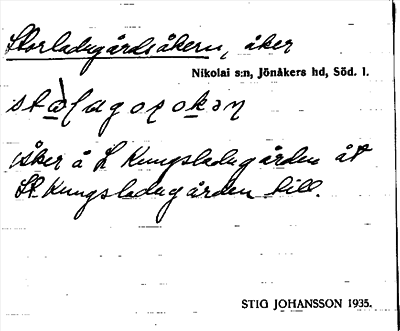 Storladugårdsåkern, åker
Nikolai s:n, Jönåkers hd, Söd. l.
åker å L Kungsladugården åt
St. Kungsladugården till.
STIG JOHANSSON 1935.